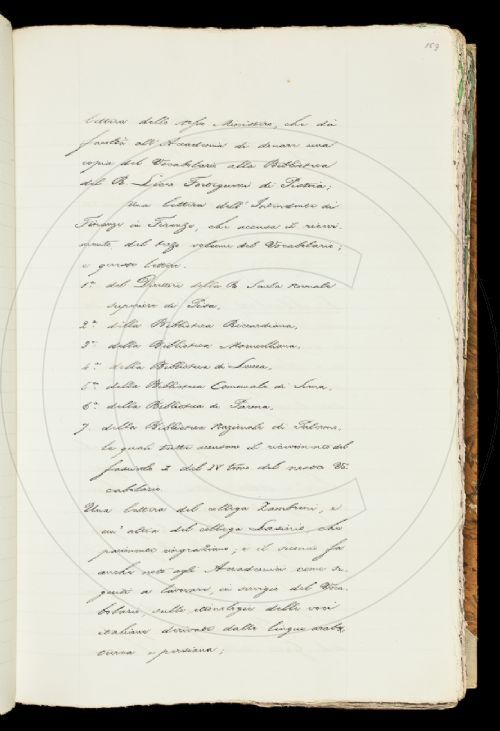 159
lettera dello stesso Ministero, che dà
facoltà all'Accademia di donare una
copia del Vocabolario alla Biblioteca
del R. Liceo Forteguerri di Pistoia;
Una lettera dell'Intendente di
Finanza in Firenze, che accusa il ricevi-
mento del terzo volume del Vocabolario;
e queste lettere.
1.a del Direttore della R. Scuola Normale
superiore di Pisa,
2.a della Biblioteca Riccardiana,
3.a della Biblioteca Marucelliana,
4.a della Biblioteca di Lucca,
5.a della Biblioteca Comunale di Siena,
6.a della Biblioteca di Parma,
7. della Biblioteca Nazionale di Palermo,
le quali tutte accusano il ricevimento del
fascicolo I del IV tomo del nostro Vo-
cabolario.
Una lettera del collega Zambrini, e
un'altra del collega che
ringraziano; e il secondo fa
anche noto agli Accademici come
a lavorare, in servigio del Voca-
bolario, sulle etimologie delle voci
italiane derivate dalle lingue araba,
turca e persiana;